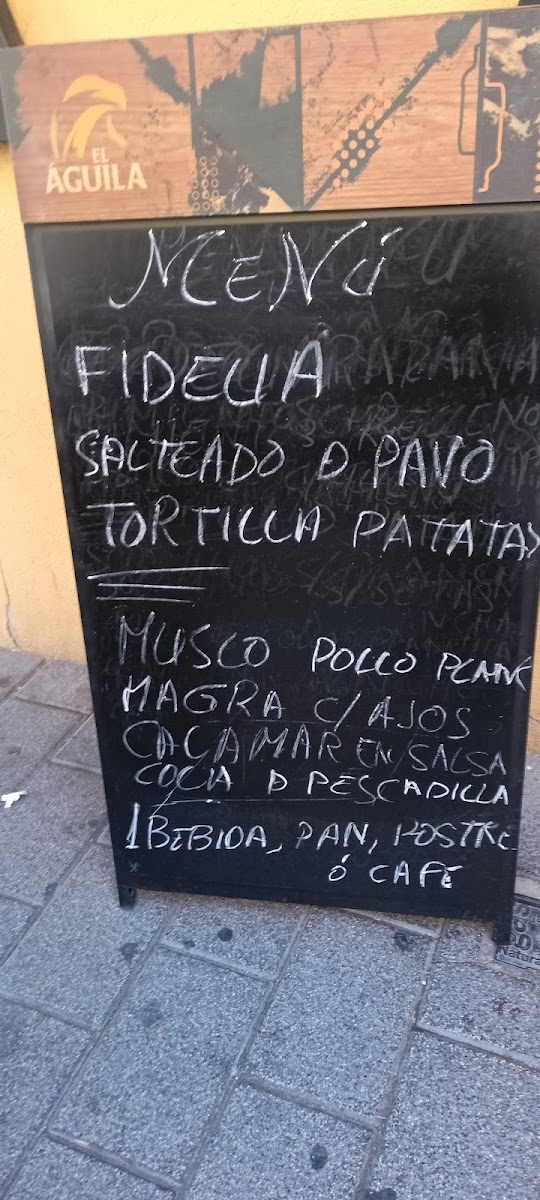 EL
ÁGUILA
MENÚ
FIDEUÁ
SALTEADO D PAVO
TORTILLA PATATAS
MUSLO POLLO PLANC
MAGRA C/AJOS
CALAMAR EN SALSA
COLA D PESCADILLA
1 BEBIDA, PAN, POSTRE
Ó CAFÉ